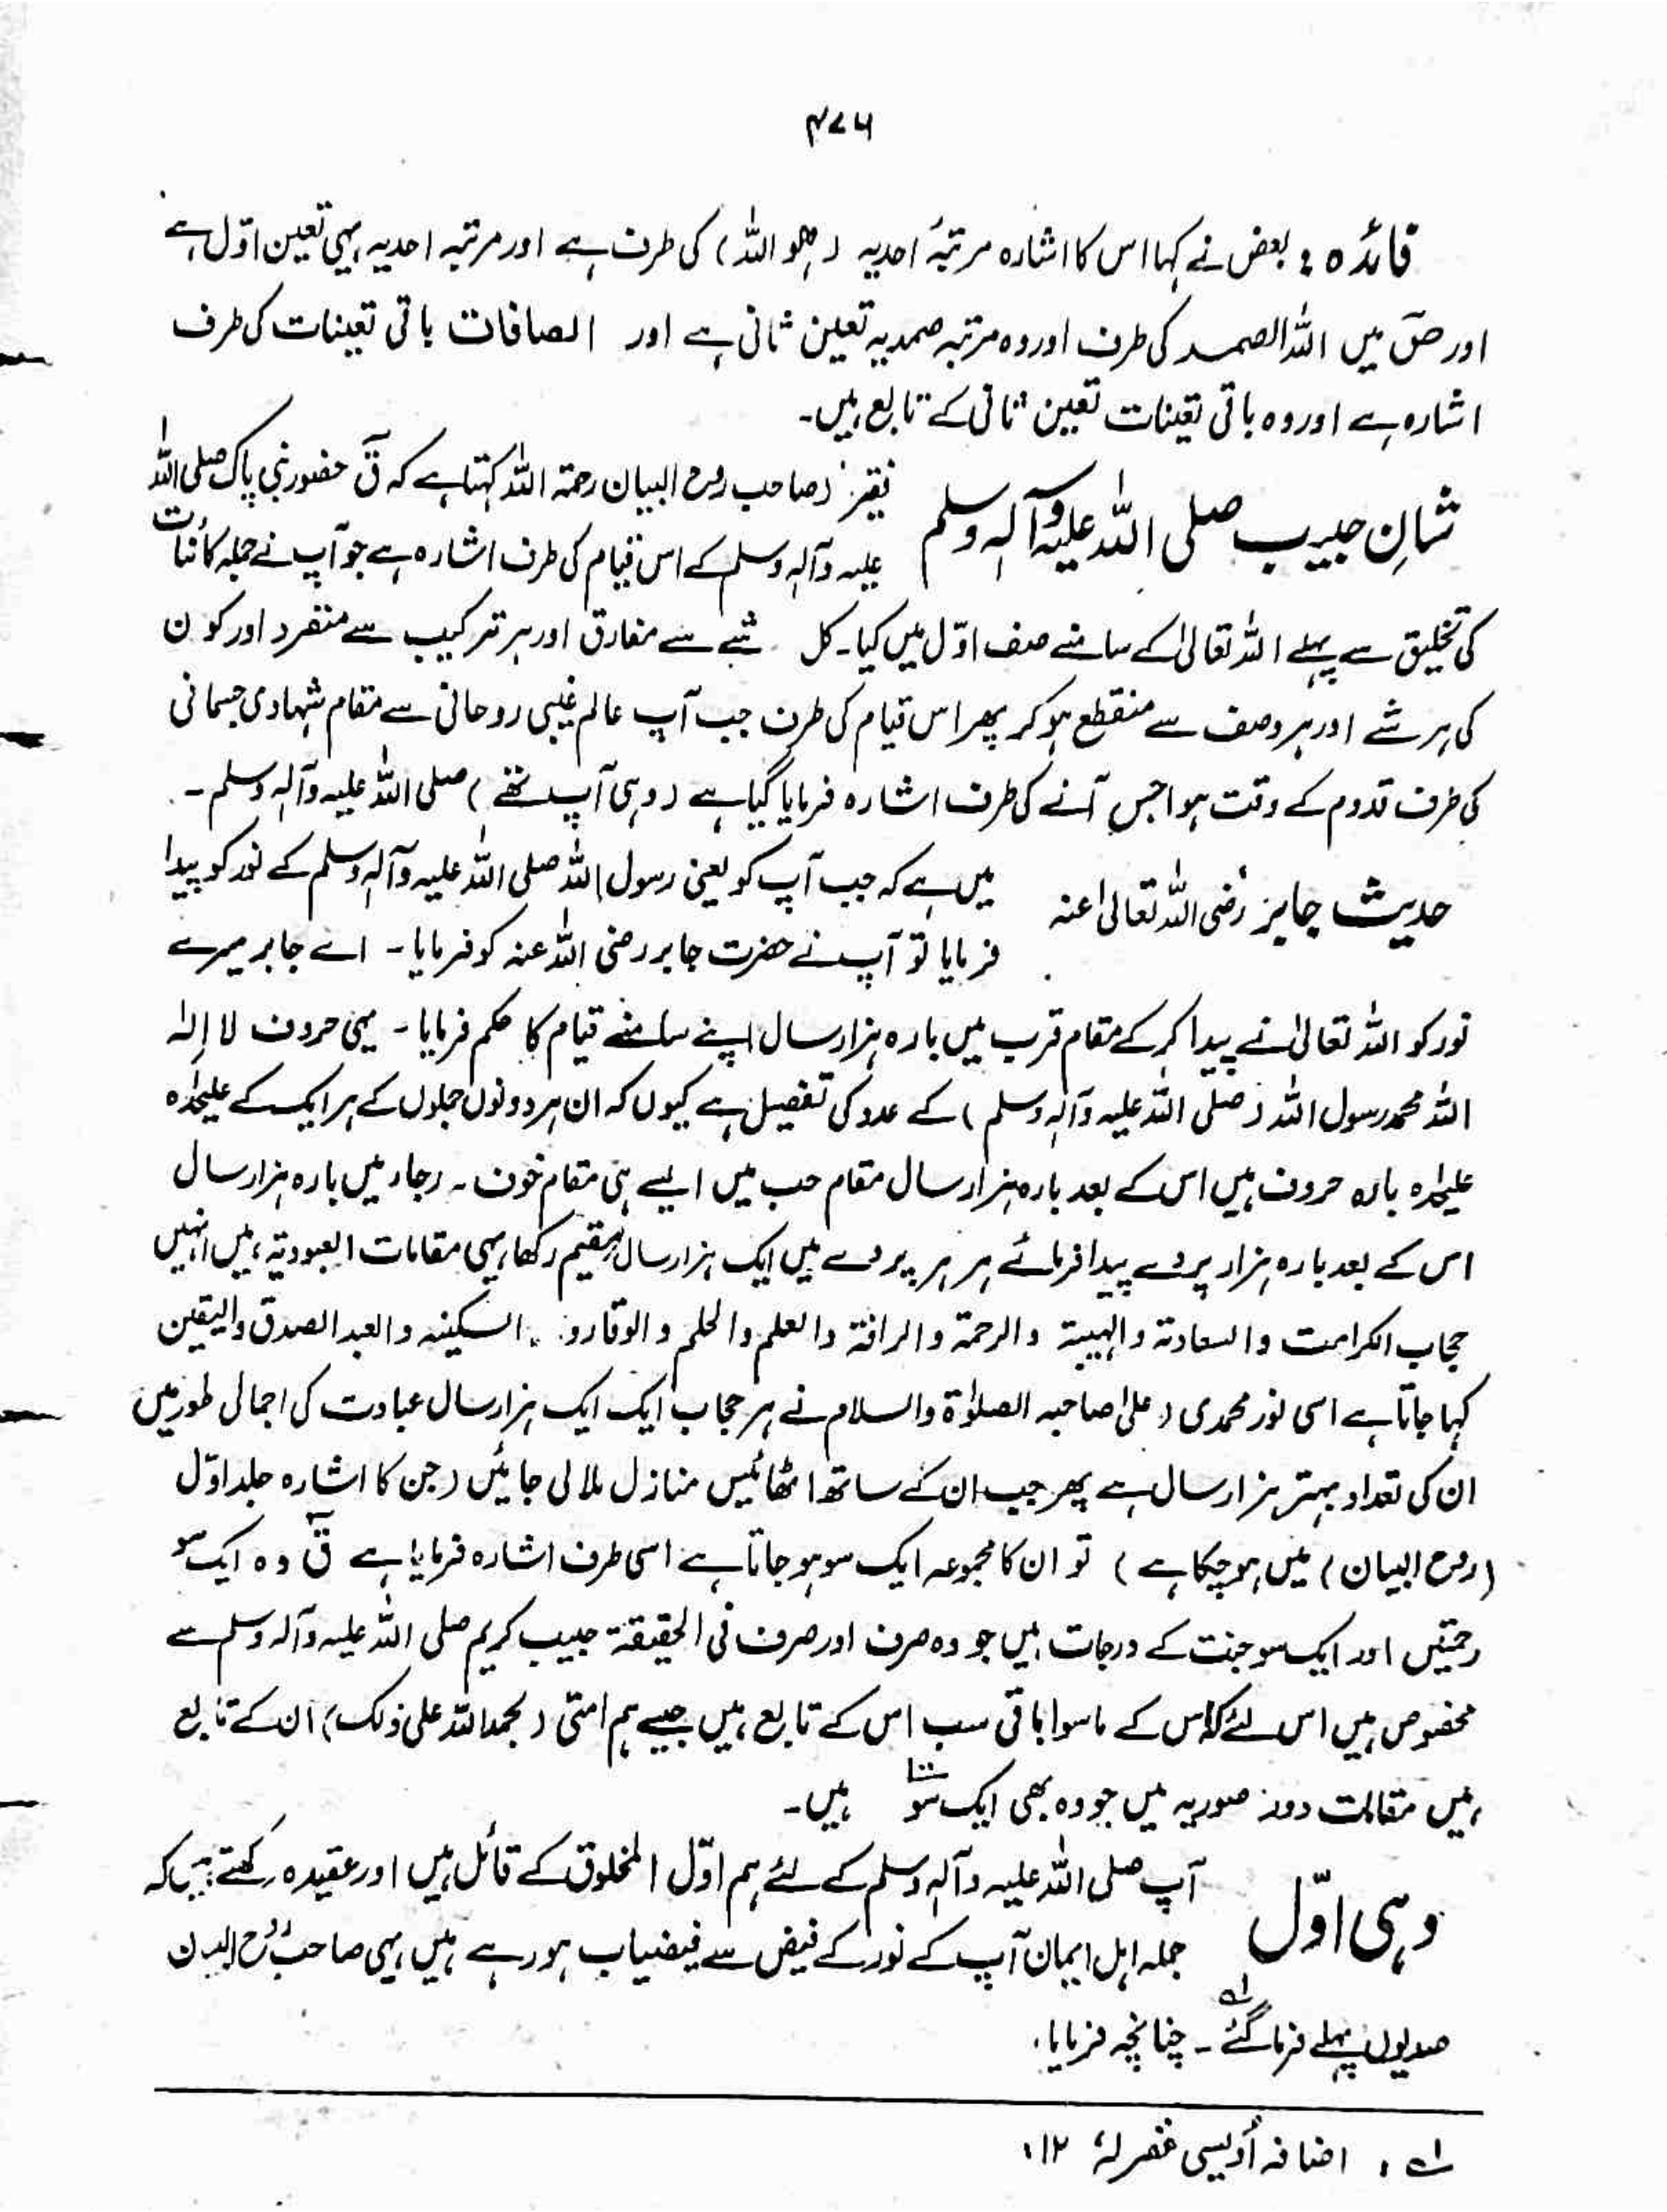 ۴۷۶
فائدہ : بعض نے کہا اس کا اشارہ مرتبۂ احدیہ ( ہو اللہ ) کی طرف ہے اور مرتبہ احدیہ یہی تعین اوّل ہے
اور صٓ میں اللہ الصمد کی طرف اور وہ مرتبہ صمدیہ تعین ثانی ہے اور الصافات باقی تعینات کی طرف
اشارہ ہے اور وہ باقی تعینات تعین ثانی کے تابع ہیں۔
شانِ حبیب صلی اللہ علیہ وآلہ وسلم
فقیر ( صاحب روح البیان رحمۃ اللہ کہتا ہے کہ قٓ حضور نبی پاک صلی اللہ
علیہ وآلہ وسلم کے اس قیام کی طرف اشارہ ہے جو آپ نے جملہ کائنات
کی تخلیق سے پہلے اللہ تعالیٰ کے سامنے صف اوّل میں کیا۔ کل شے سے مفارق اور ہر ترکیب سے منفرد اور کون
کی ہر شے اور ہر وصف سے منقطع ہو کر پھر اس قیام کی طرف جب آپ عالم غیبی روحانی سے مقام شہادی جسمانی
کی طرف قدوم کے وقت ہوا جس آنے کی طرف اشارہ فرمایا گیا ہے ( وہی آپ تھے ) صلی اللہ علیہ وآلہ وسلم ۔
حدیث جابر رضی اللہ تعالیٰ عنہ
میں ہے کہ جب آپ کو یعنی رسول اللہ صلی اللہ علیہ وآلہ وسلم کے نور کو پیدا
فرمایا تو آپ نے حضرت جابر رضی اللہ عنہ کو فرمایا ۔ اے جابر میرے
نور کو اللہ تعالیٰ نے پیدا کر کے مقام قرب میں بارہ ہزار سال اپنے سامنے قیام کا حکم فرمایا ۔ یہی حروف لا إلٰہ
اللہ محمد رسول اللہ ( صلی اللہ علیہ وآلہ وسلم ) کے عدد کی تفصیل ہے کیوں کہ ان ہر دونوں جملوں کے ہر ایک کے علیحدہ
علیحدہ بارہ حروف ہیں اس کے بعد بارہ ہزار سال مقام حب میں ایسے ہی مقام خوف ۔ رجاء میں بارہ ہزار سال
اس کے بعد بارہ ہزار پردے پیدا فرمائے ہر ہر پردے میں ایک ہزار سال مقیم رکھا یہی مقامات العبودیۃ ہیں انہیں
حجاب الکرامت والسعادۃ والہیبۃ والرحمۃ والرافۃ والعلم والحلم والوقار و السکینہ والعبد الصدق والیقین
کہا جاتا ہے اسی نور محمدی ( علیٰ صاحبہ الصلوٰۃ والسلام نے ہر حجاب ایک ایک ہزار سال عبادت کی اجمالی طور میں
ان کی تعداد بہتر ہزار سال ہے پھر جب ان کے ساتھ اٹھائیس منازل ملا لی جائیں ( جن کا اشارہ جلد اوّل
( روح البیان ) میں ہو چکا ہے ) تو ان کا مجموعہ ایک سو ہو جاتا ہے اسی طرف اشارہ فرمایا ہے قٓ وہ ایک سو
رحمتیں اور ایک سو جنت کے درجات ہیں جو وہ صرف اور صرف فی الحقیقۃ حبیب کریم صلی اللہ علیہ وآلہ وسلم سے
مخصوص ہیں اس لئے کہ اس کے ماسوا باقی سب اس کے تابع ہیں جیسے ہم امتی ( بحمد اللہ علی ذٰلک ) ان کے تابع
ہیں مقالات دورۂ صوریہ میں جو وہ بھی ایک سو ہیں۔
وہی اوّل
آپ صلی اللہ علیہ وآلہ وسلم کے لئے ہم اوّل المخلوق کے قائل ہیں اور عقیدہ رکھتے ہیں کہ
جملہ اہل ایمان آپ کے نور کے فیض سے فیضیاب ہو رہے ہیں یہی صاحب روح البیان
صدیوں پہلے فرما گئے ۔ چنانچہ فرمایا ۔
لہ : اضافہ اُویسی غفرلہٗ ۱۲